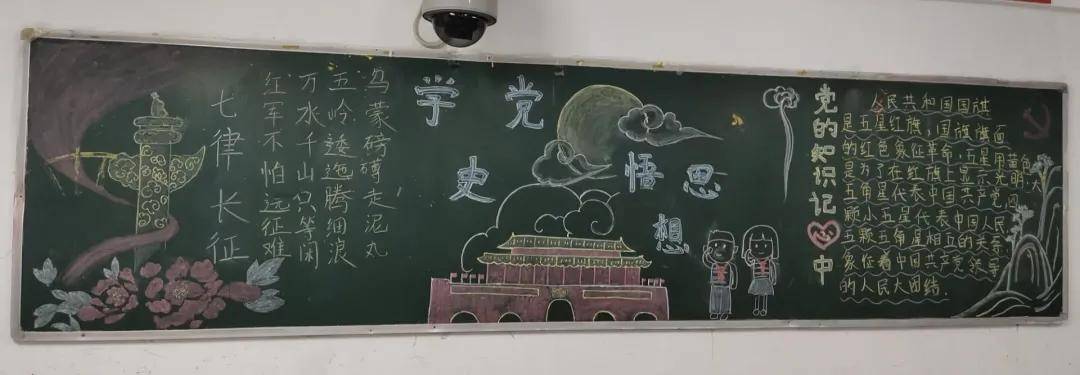 七律长征
红军不怕远征难
万水千山只等闲
五岭逶迤腾细浪
乌蒙磅礴走泥丸
学党
史悟思
想
党的知识记心中
人民共和国国旗
是五星红旗，国旗旗面
的红色象征革命，五星用黄色
是为了在红旗上显示光明，大
五角星代表中国共产党，四
颗小五星代表中国人民
五颗五角星相互的关系
象征着中国共产党领导
的人民大团结.